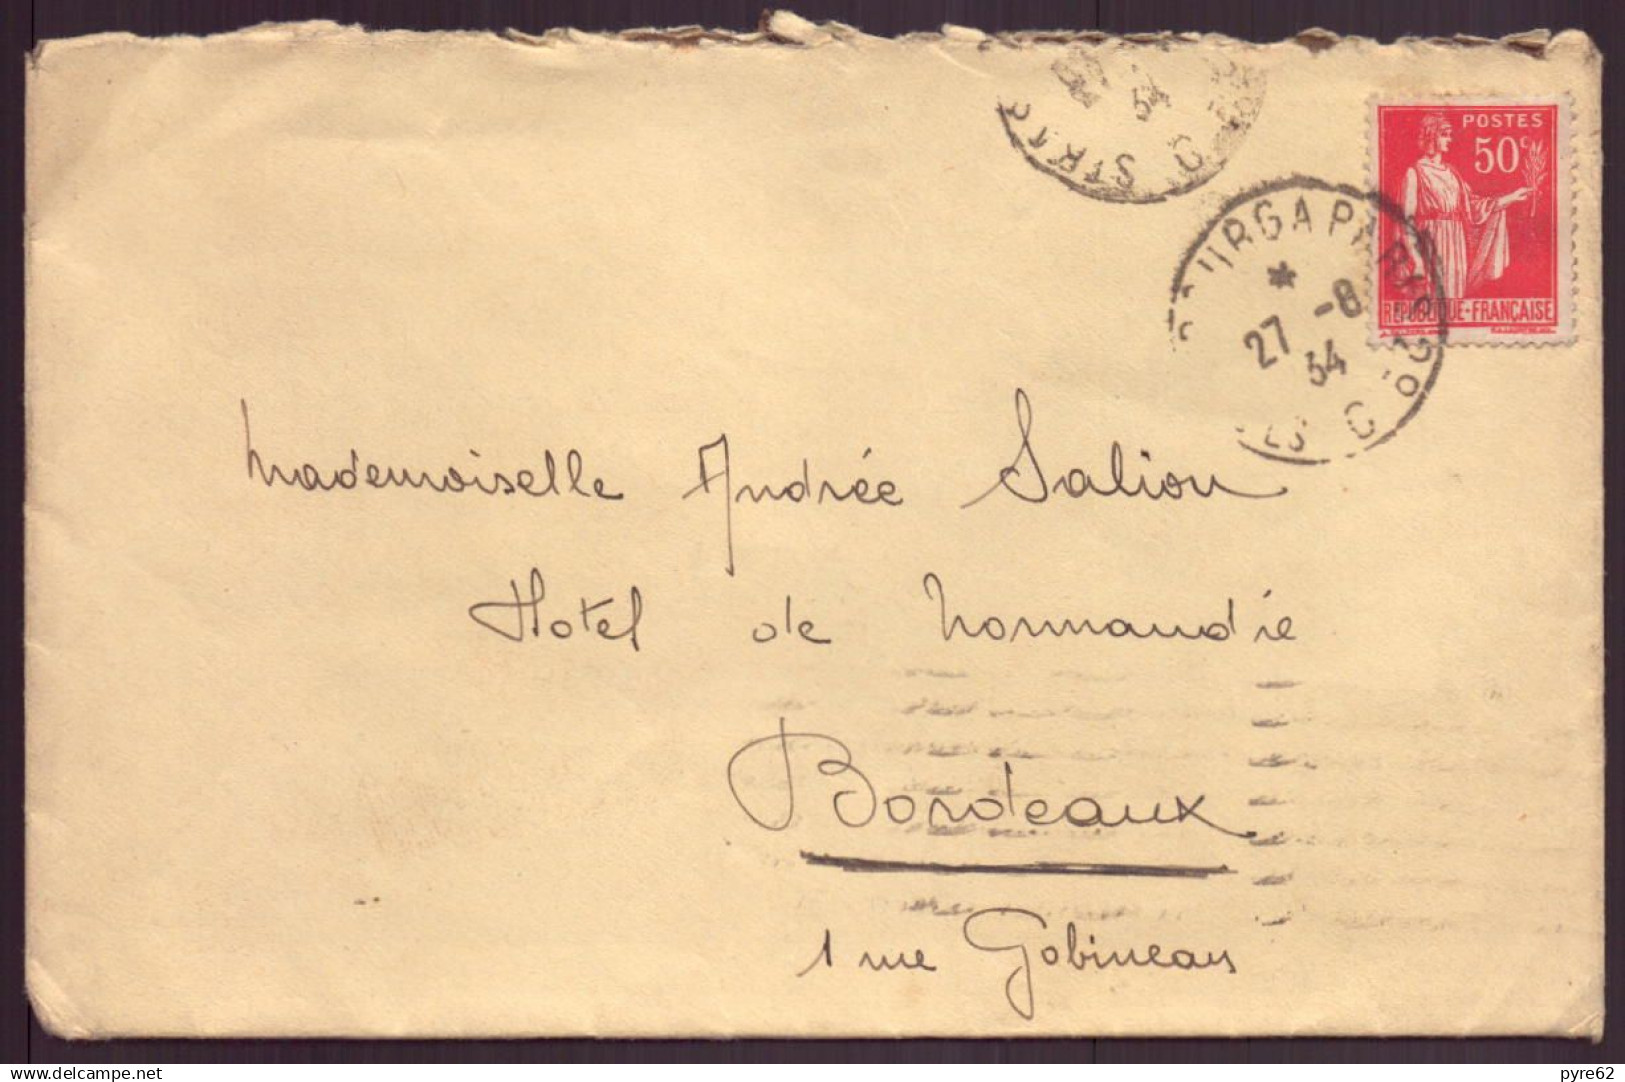 POSTES
50c
REPUBLIQUE-FRANÇAISE
STRAS
G
34
BOURG A PARIS
*
27 -8
34
G
Mademoiselle Andrée Salion
Hotel de Normandie
Bordeaux
1 rue Gobineau
delcampe.net
pyre62